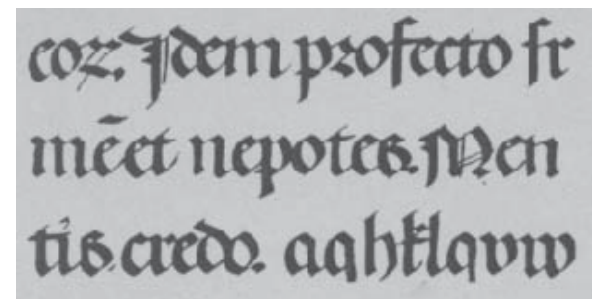 eoꝝ. Idem profecto fr
mēet nepotes. Men
tis. credo. aqhklqvw